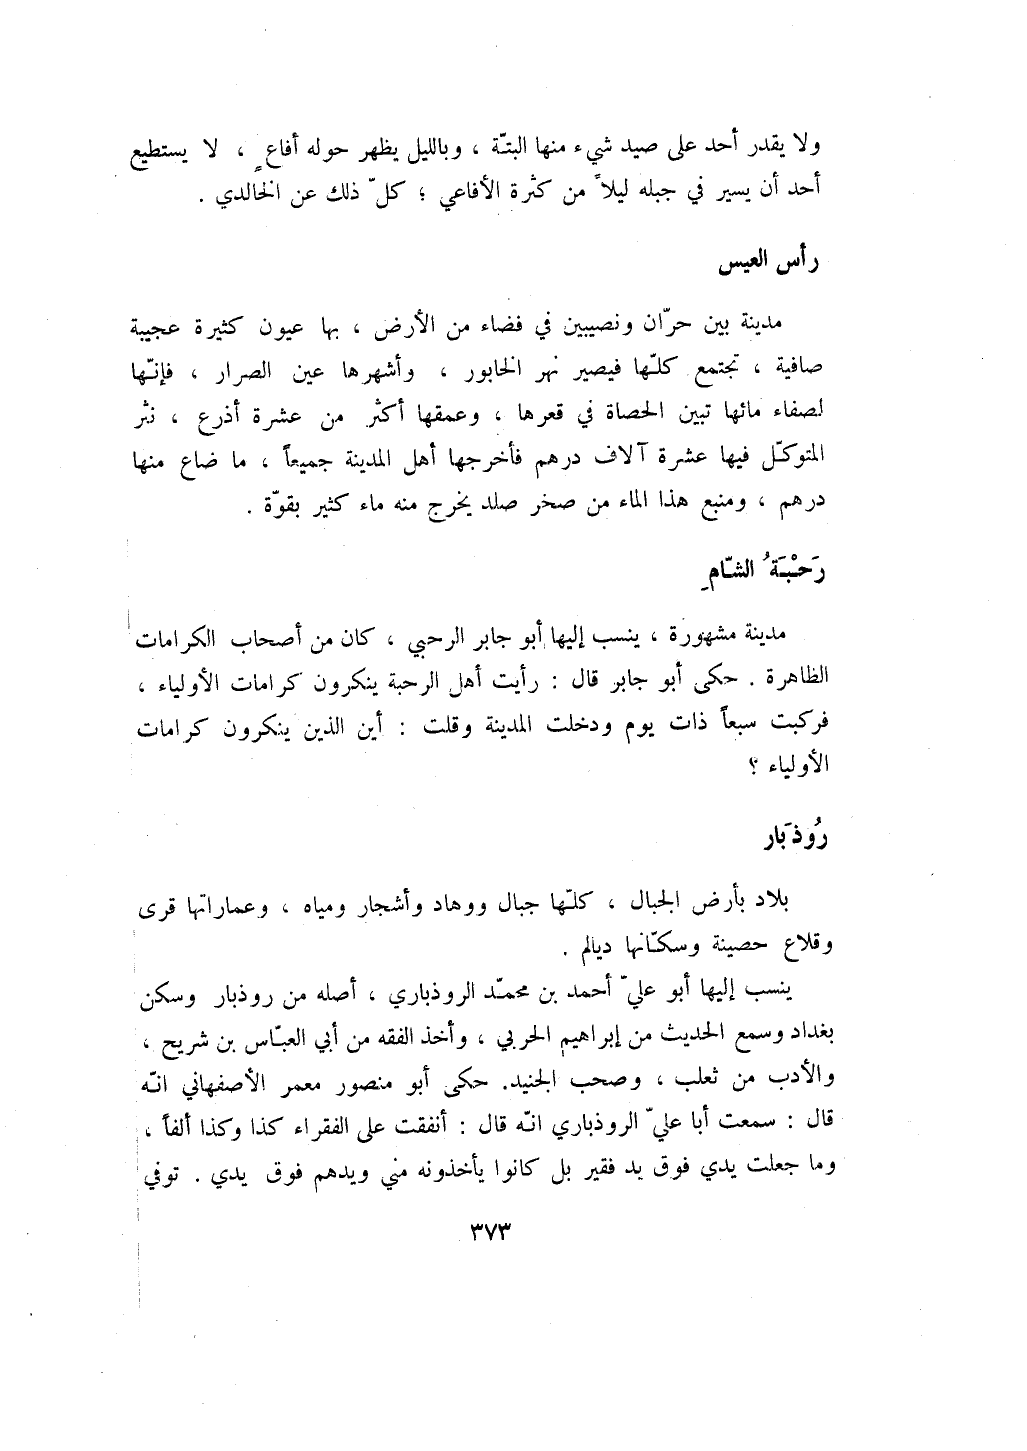 ولا يقدر أحد على صيد شيء منها البتّة ، وبالليل يظهر حوله أفاعٍ ، لا يستطيع
أحد أن يسير في جبله ليلاً من كثرة الأفاعي ؛ كلّ ذلك عن الخالدي .
رأس العيس
مدينة بين حرّان ونصيبين في فضاء من الأرض ، بها عيون كثيرة عجيبة
صافية ، تجتمع كلّها فيصير نهر الخابور ، وأشهرها عين الصرار ، فإنّها
لصفاء مائها تبين الحصاة في قعرها ، وعمقها أكثر من عشرة أذرع ، نثر
المتوكّل فيها عشرة آلاف درهم فأخرجها أهل المدينة جميعاً ، ما ضاع منها
درهم ، ومنبع هذا الماء من صخر صلد يخرج منه ماء كثير بقوّة .
رَحْبَةُ الشّامِ
مدينة مشهورة ، ينسب إليها أبو جابر الرحبي ، كان من أصحاب الكرامات
الظاهرة . حكى أبو جابر قال : رأيت أهل الرحبة ينكرون كرامات الأولياء ،
فركبت سبعاً ذات يوم ودخلت المدينة وقلت : أين الذين ينكرون كرامات
الأولياء ؟
رُوذَبار
بلاد بأرض الجبال ، كلّها جبال ووهاد وأشجار ومياه ، وعماراتها قرى
وقلاع حصينة وسكّانها ديالم .
ينسب إليها أبو عليّ أحمد بن محمّد الروذباري ، أصله من روذبار وسكن
بغداد وسمع الحديث من إبراهيم الحربي ، وأخذ الفقه من أبي العبّاس بن شريح ،
والأدب من ثعلب ، وصحب الجنيد. حكى أبو منصور معمر الأصفهاني انّه
قال : سمعت أبا عليّ الروذباري انّه قال : أنفقت على الفقراء كذا وكذا ألفاً ،
وما جعلت يدي فوق يد فقير بل كانوا يأخذونه مني ويدهم فوق يدي . توفي
٣٧٣